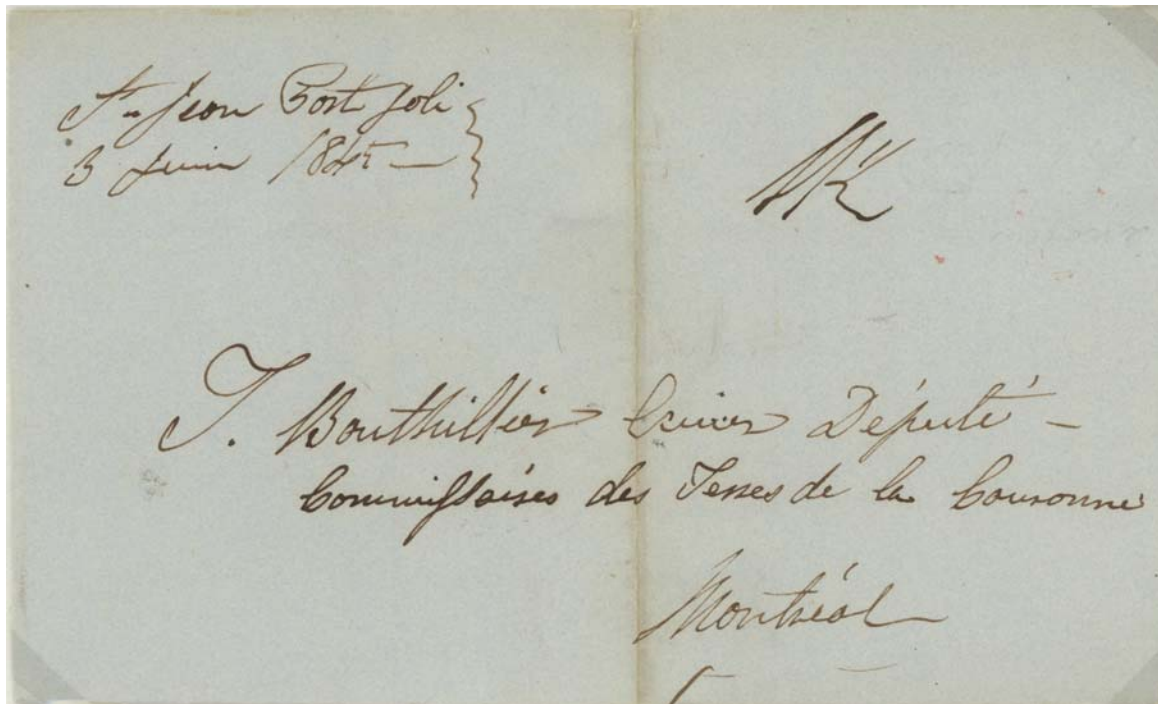 St Jean Port Joli
3 Juin 1845 —
T. Bouthillier Ecuier Député —
Commissaires des Terres de la Couronne
Montréal